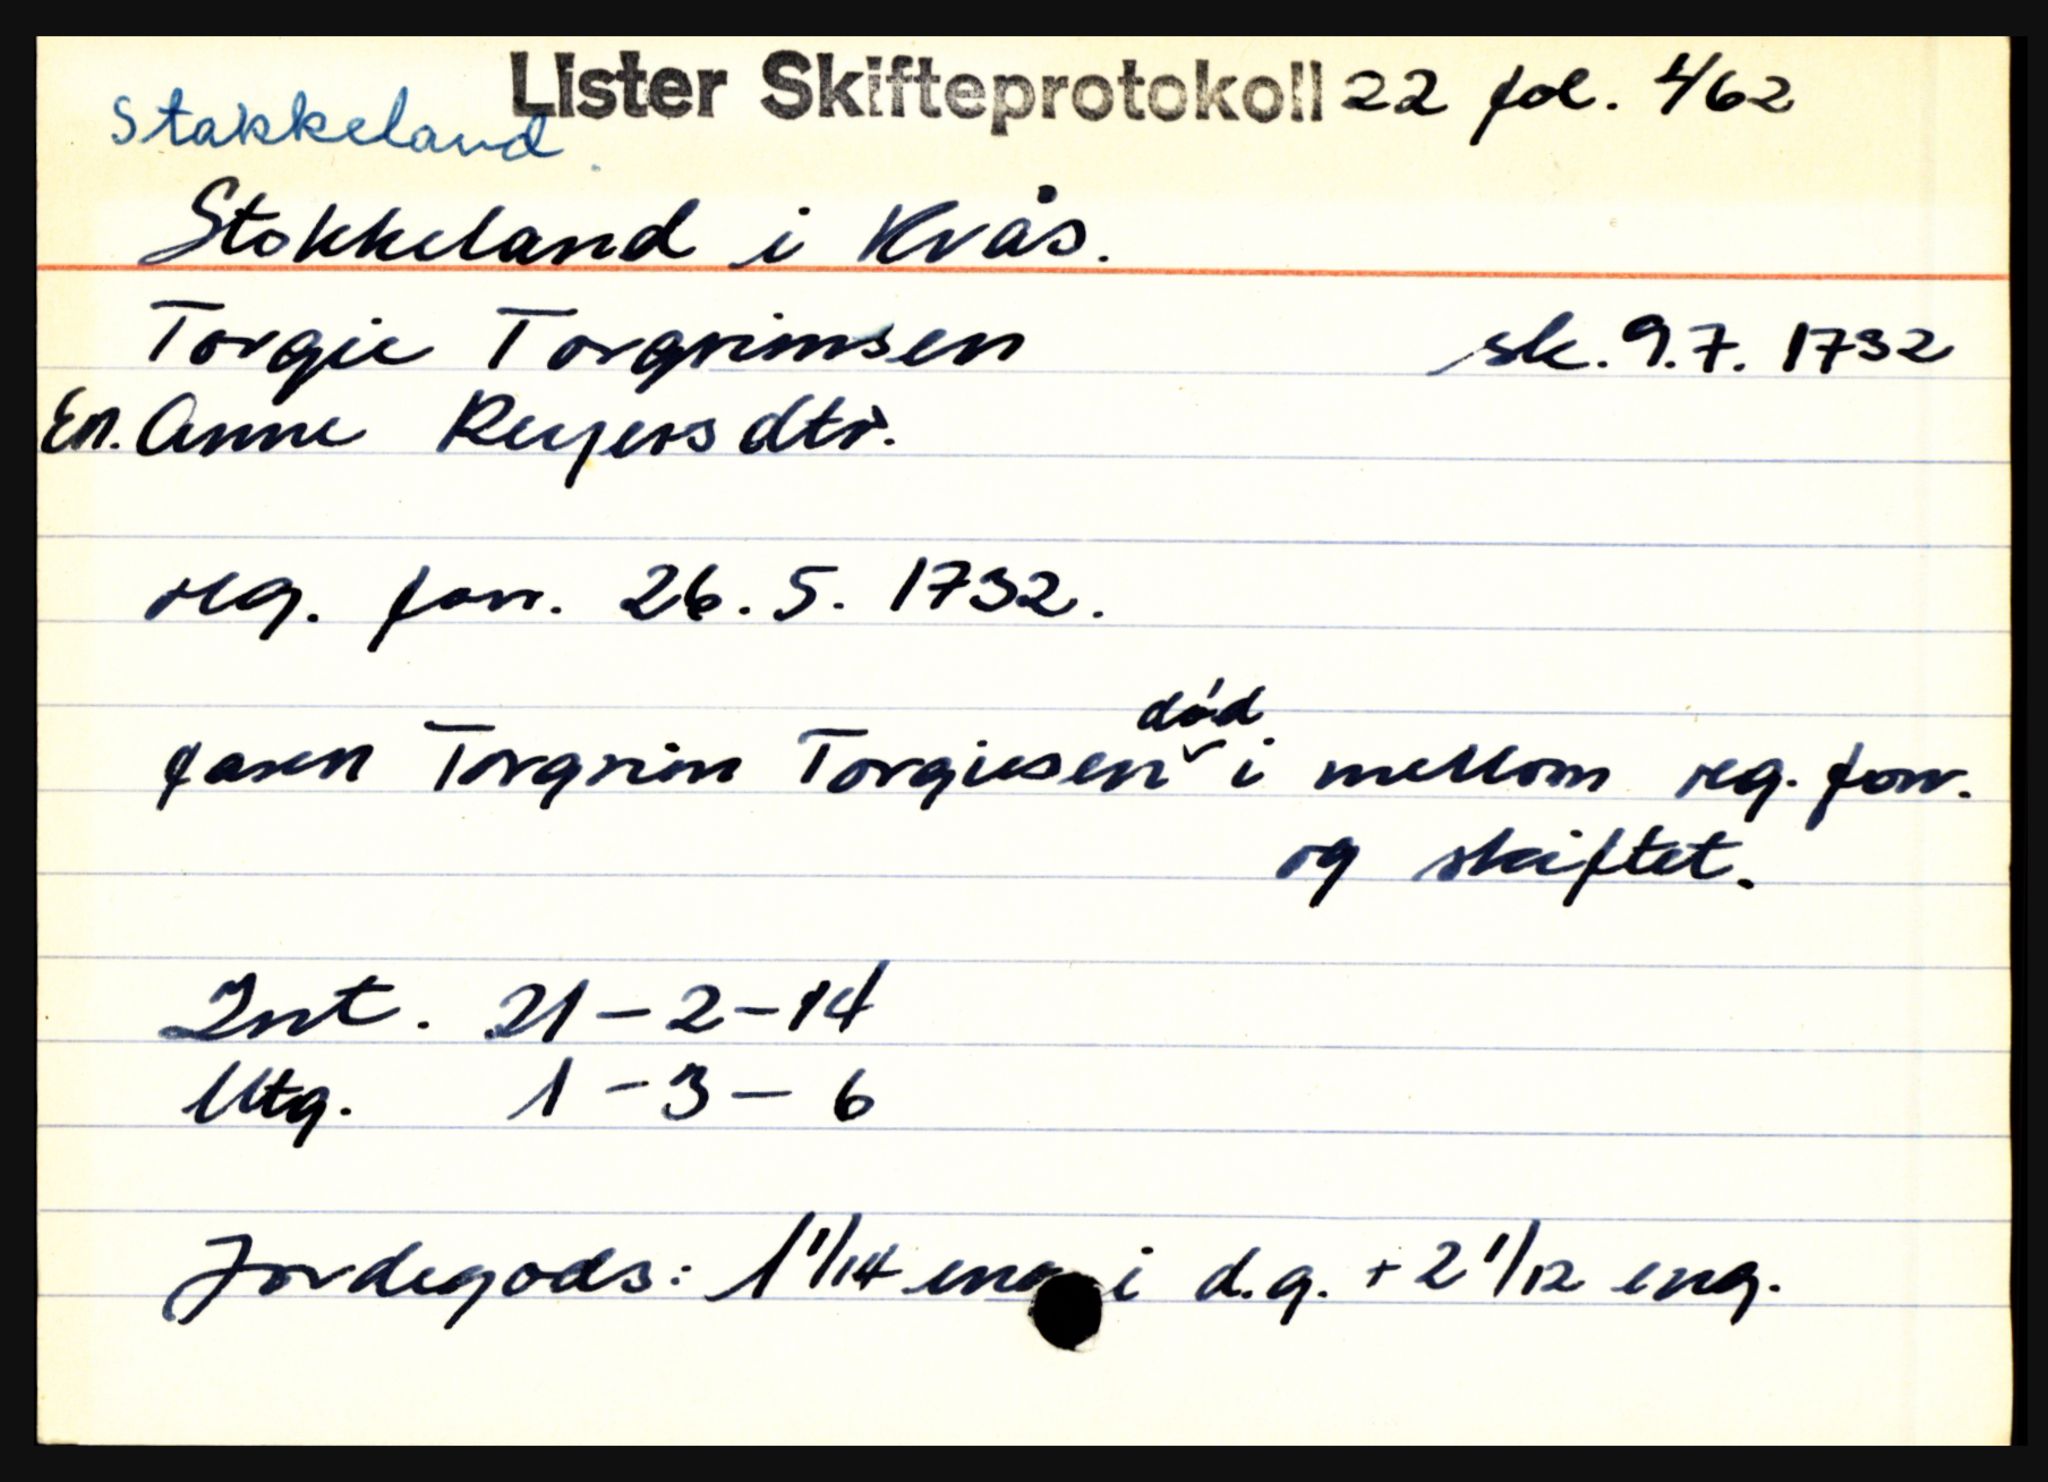 Lister Skifteprotokoll 22 fol. 462
Stakkeland.
Stokkeland i Kvås.
Torgie Torgrimsen sk. 9.7. 1732
En. Anne Reyersdtr.
reg. forr. 26. 5. 1732.
faren Torgrim Torgiesen død i mellom reg. forr.
og skiftet.
Int. 21 - 2 - 14
Utg. 1 - 3 - 6
Jordegods: 1 1/14 eng i d.g. + 2 1/12 eng.